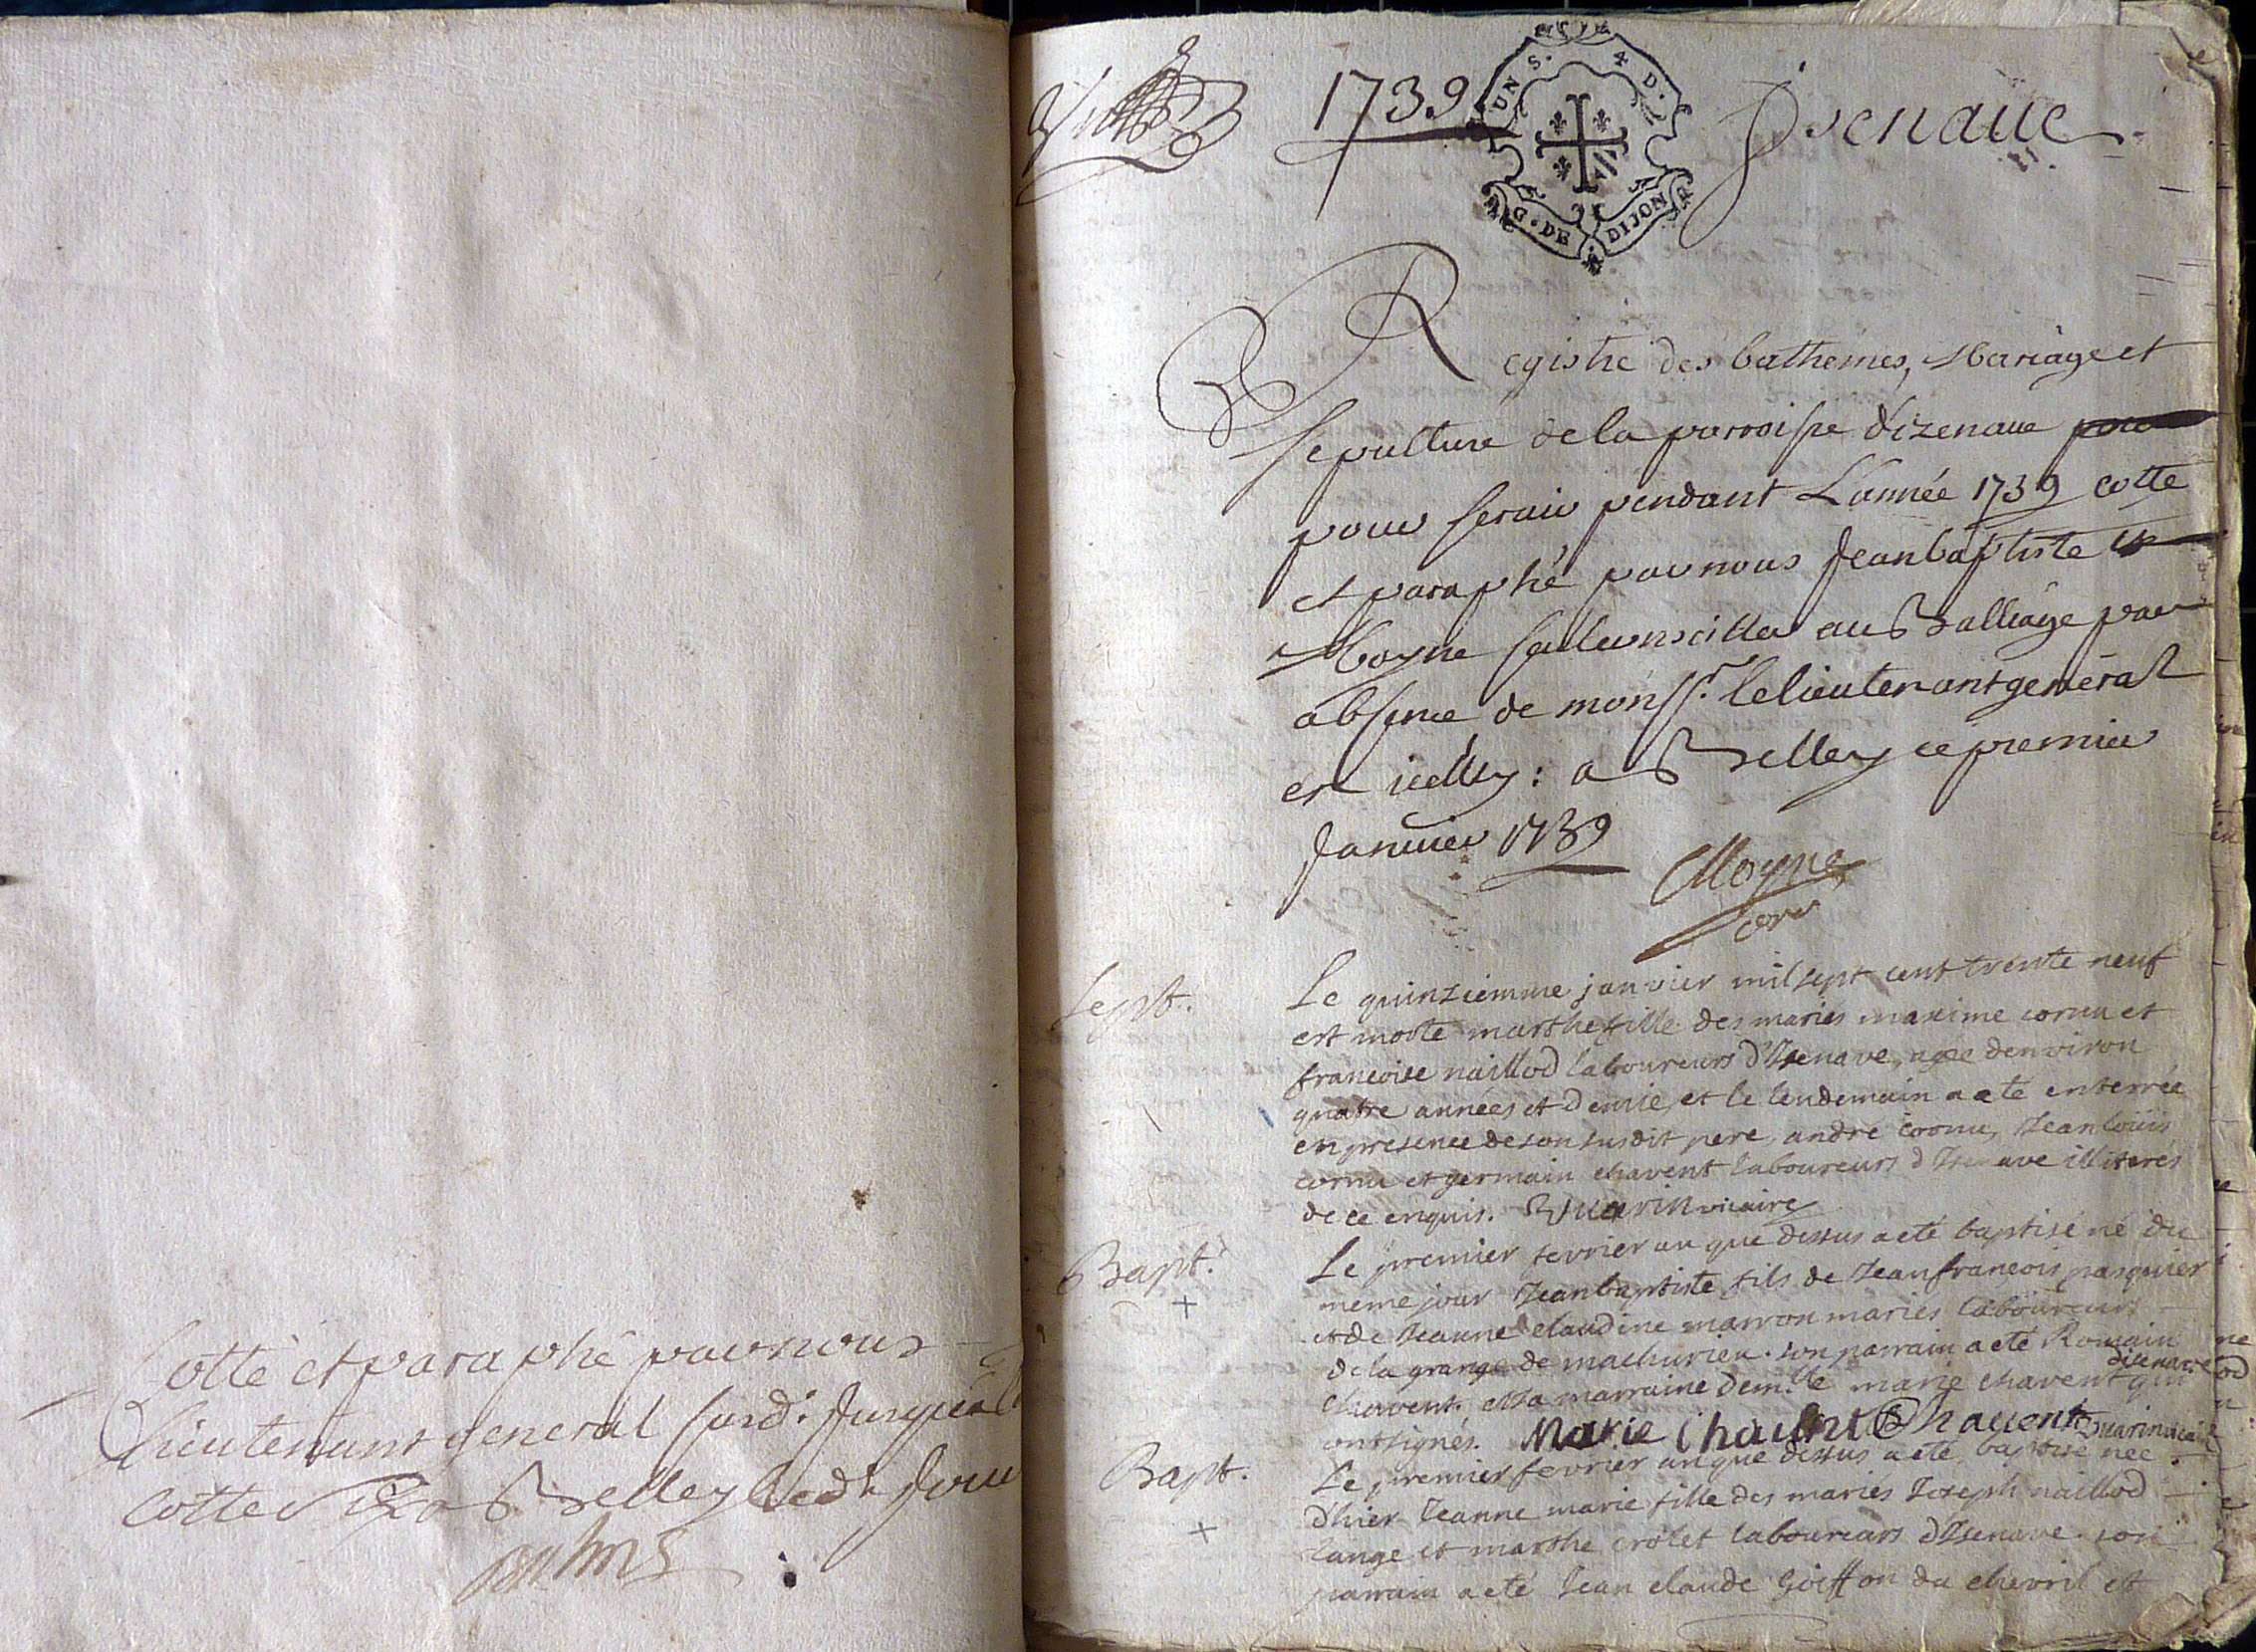 Cotté et paraphé par nous
Lieutenant general susd.
cotte a Belley led. jour
1739
UN S. 4 D.
G. DE DIJON
Isenaue
Registre des bathemes, Mariage et
sepulture de la parroisse d'izenaue pour
pour seruir pendant L'année 1739 cotte
et paraphé par nous Jean baptiste
Moyne conseiller au Balliage par
absence de monsr. le lieutenant general
en icelluy : a Belley ce premier
Januier 1739
Moyne
Sepult.
Le quinziemme janvier mil sept cent trente neuf
est morte marthe fille des mariés maxime cornu et
francoise naillod laboureurs d'Isenave, agée denviron
quatre années et demie, et le lendemain a eté enterrée
en presence de son susdit pere, andré cornu, Jean loüis
cornu et germain chavent laboureurs d'Isenave illiterés
de ce enquis. Guarin vicaire
Bapt.
+
Le premier fevrier an que dessus a eté baptisé né du
meme jour Jean baptiste fils de Jean francois pasquier
et de Jeanne claudine marron mariés laboureurs
de la grange de machurieu. son parrain a eté Romain
chavent. et sa marraine demlle marie chavent disenave qui
ont signés. Marie Chauent Chauent Guarin vicaire
Bapt.
+
Le premier fevrier an que dessus a eté baptisé née
d'hier Jeanne marie fille des mariés Joseph naillod
lange et marthe crolet laboureurs d'Isenave. son
parrain a eté Jean claude Goiffon du chevril et